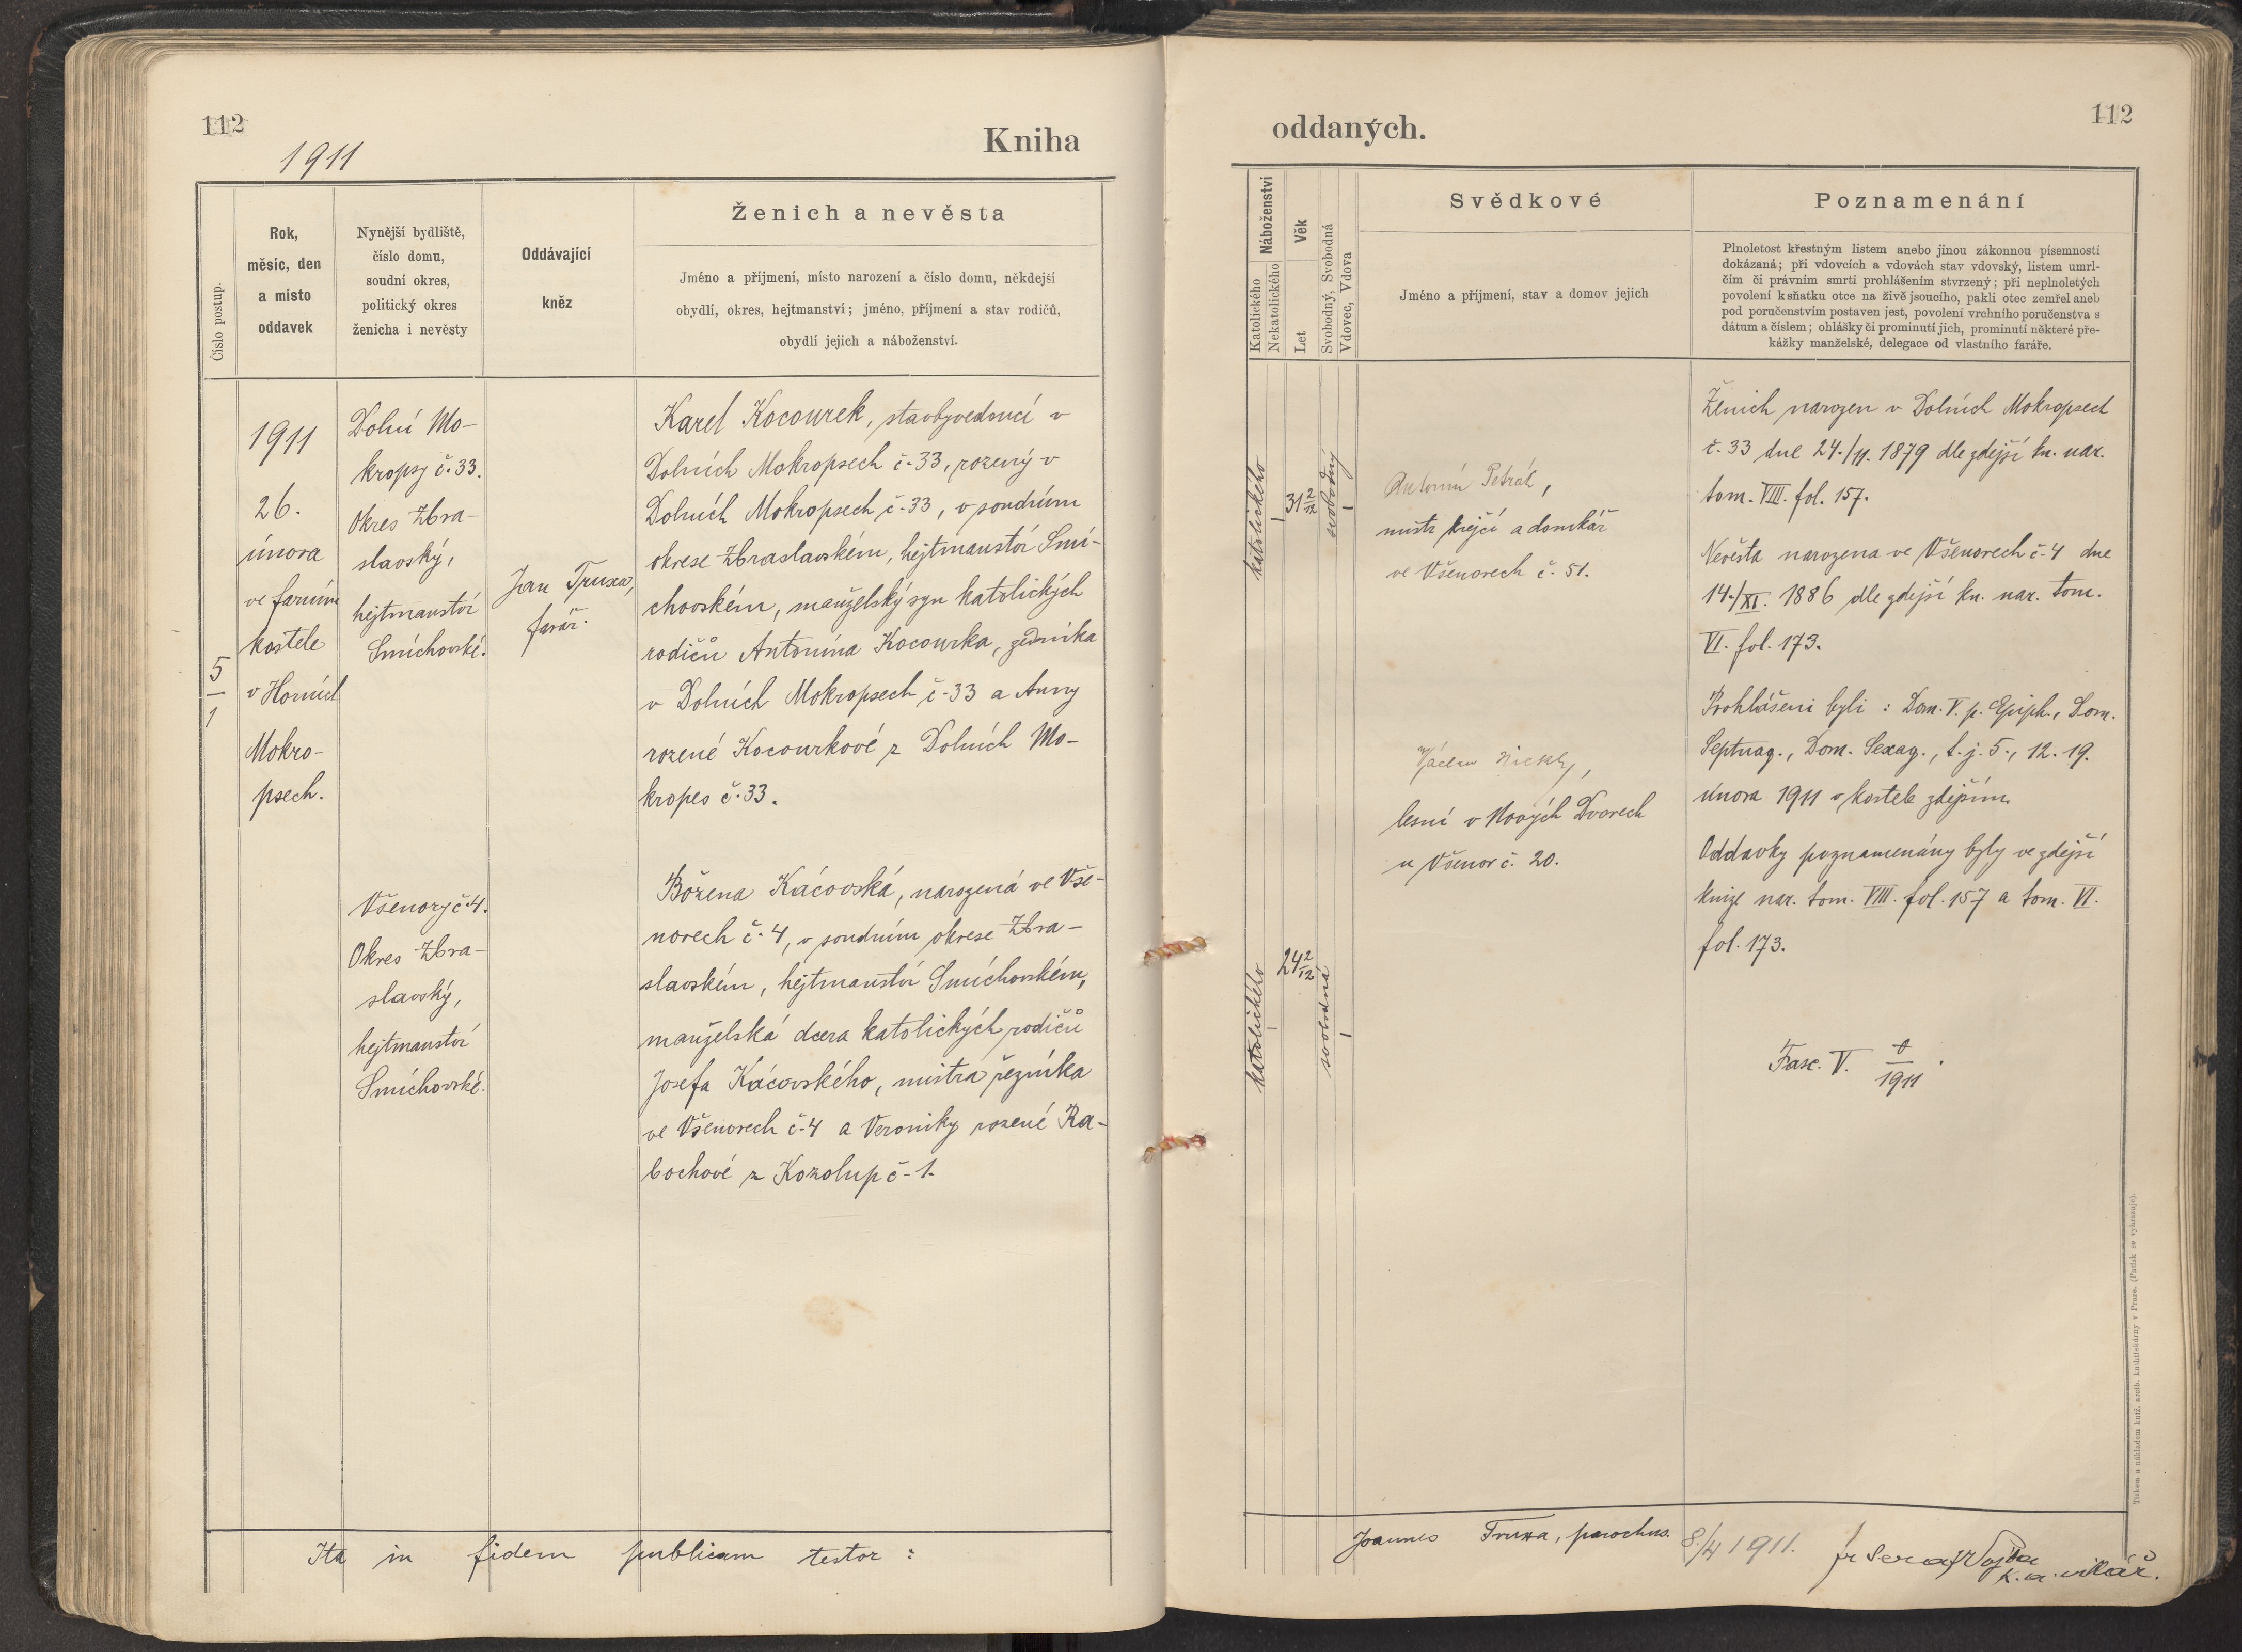 112
1911
Kniha
Číslo postup.
Rok,
měsic, den
a místo
oddavek
Nynější bydliště,
číslo domu,
soudní okres,
politický okres
ženicha i nevěsty
Oddávající
kněz
Ženich a nevěsta
Jméno a příjmení, místo narození a číslo domu, někdejší
obydlí, okres, hejtmanství; jméno, příjmení a stav rodičů,
obydlí jejich a náboženství.
5
1
1911
26.
února
ve farním
kostele
v Horních
Mokro-
psech.
Dolní Mo-
kropsy č. 33.
Okres Zbra-
slavský,
hejtmanství
Smíchovské.
Jan Truxa,
farář.
Karel Kocourek, stavbyvedoucí v
Dolních Mokropsech č. 33, rozený v
Dolních Mokropsech č. 33, v soudním
okrese Zbraslavském, hejtmanství Smí-
chovském, manželský syn katolických
rodičů Antonína Kocourka, zedníka
v Dolních Mokropsech č. 33 a Anny
rozené Kocourkové z Dolních Mo-
kropes č. 33.
Všenory č. 4.
Okres Zbra-
slavský,
hejtmanství
Smíchovské.
Božena Kácovská, narozená ve Vše-
norech č. 4, v soudním okrese Zbra-
slavském, hejtmanství Smíchovském,
manželská dcera katolických rodičů
Josefa Kácovského, mistra řezníka
ve Všenorech č. 4 a Veroniky rozené Ra-
bochové z Kozolup č. 1.
Ita in fidem publicam testor :
112
oddaných.
Náboženství
Katolického
Nekatolického
Věk
Let
Svobodný, Svobodná
Vdovec, Vdova
Svědkové
Jméno a příjmení, stav a domov jejich
Poznamenání
Plnoletost křestným listem anebo jinou zákonnou písemností
dokázaná; při vdovcích a vdovách stav vdovský, listem umrl-
čím či právním smrti prohlášením stvrzený; při neplnoletých
povolení k sňatku otce na živě jsoucího, pakli otec zemřel aneb
pod poručenstvím postaven jest, povolení vrchního poručenstva s
dátum a číslem; ohlášky či prominutí jich, prominutí některé pře-
kážky manželské, delegace od vlastního faráře.
katolického
1
31 2/12
svobodný
1
Antonín Petrák,
mistr krejčí a domkář
ve Všenorech č. 51.
Václav
lesní v Nových Dvorech
u Všenor č. 20.
katolického
1
24 2/12
svobodná
1
Ženich narozen v Dolních Mokropsech
č. 33 dne 24./11. 1879 dle zdejší kn. nar.
tom. VIII. fol. 157.
Nevěsta narozena ve Všenorech č. 4 dne
14./XI. 1886 dle zdejší kn. nar. tom.
VI. fol. 173.
Prohlášeni byli : Dom. V. p. Epiph., Dom.
Septuag., Dom. Sexag., t. j. 5., 12. 19.
února 1911 v kostele zdejším.
Oddavky poznamenány byly ve zdejší
knize nar. tom. VIII. fol. 157 a tom. VI.
fol. 173.
Fasc. V.
1911
Joannes Truxa, parochus.
8./4 1911.
Vojta
vikář.
Tiskem a nákladem kníž. arcib. knihtiskárny v Praze. (Patisk se vyhrazuje).